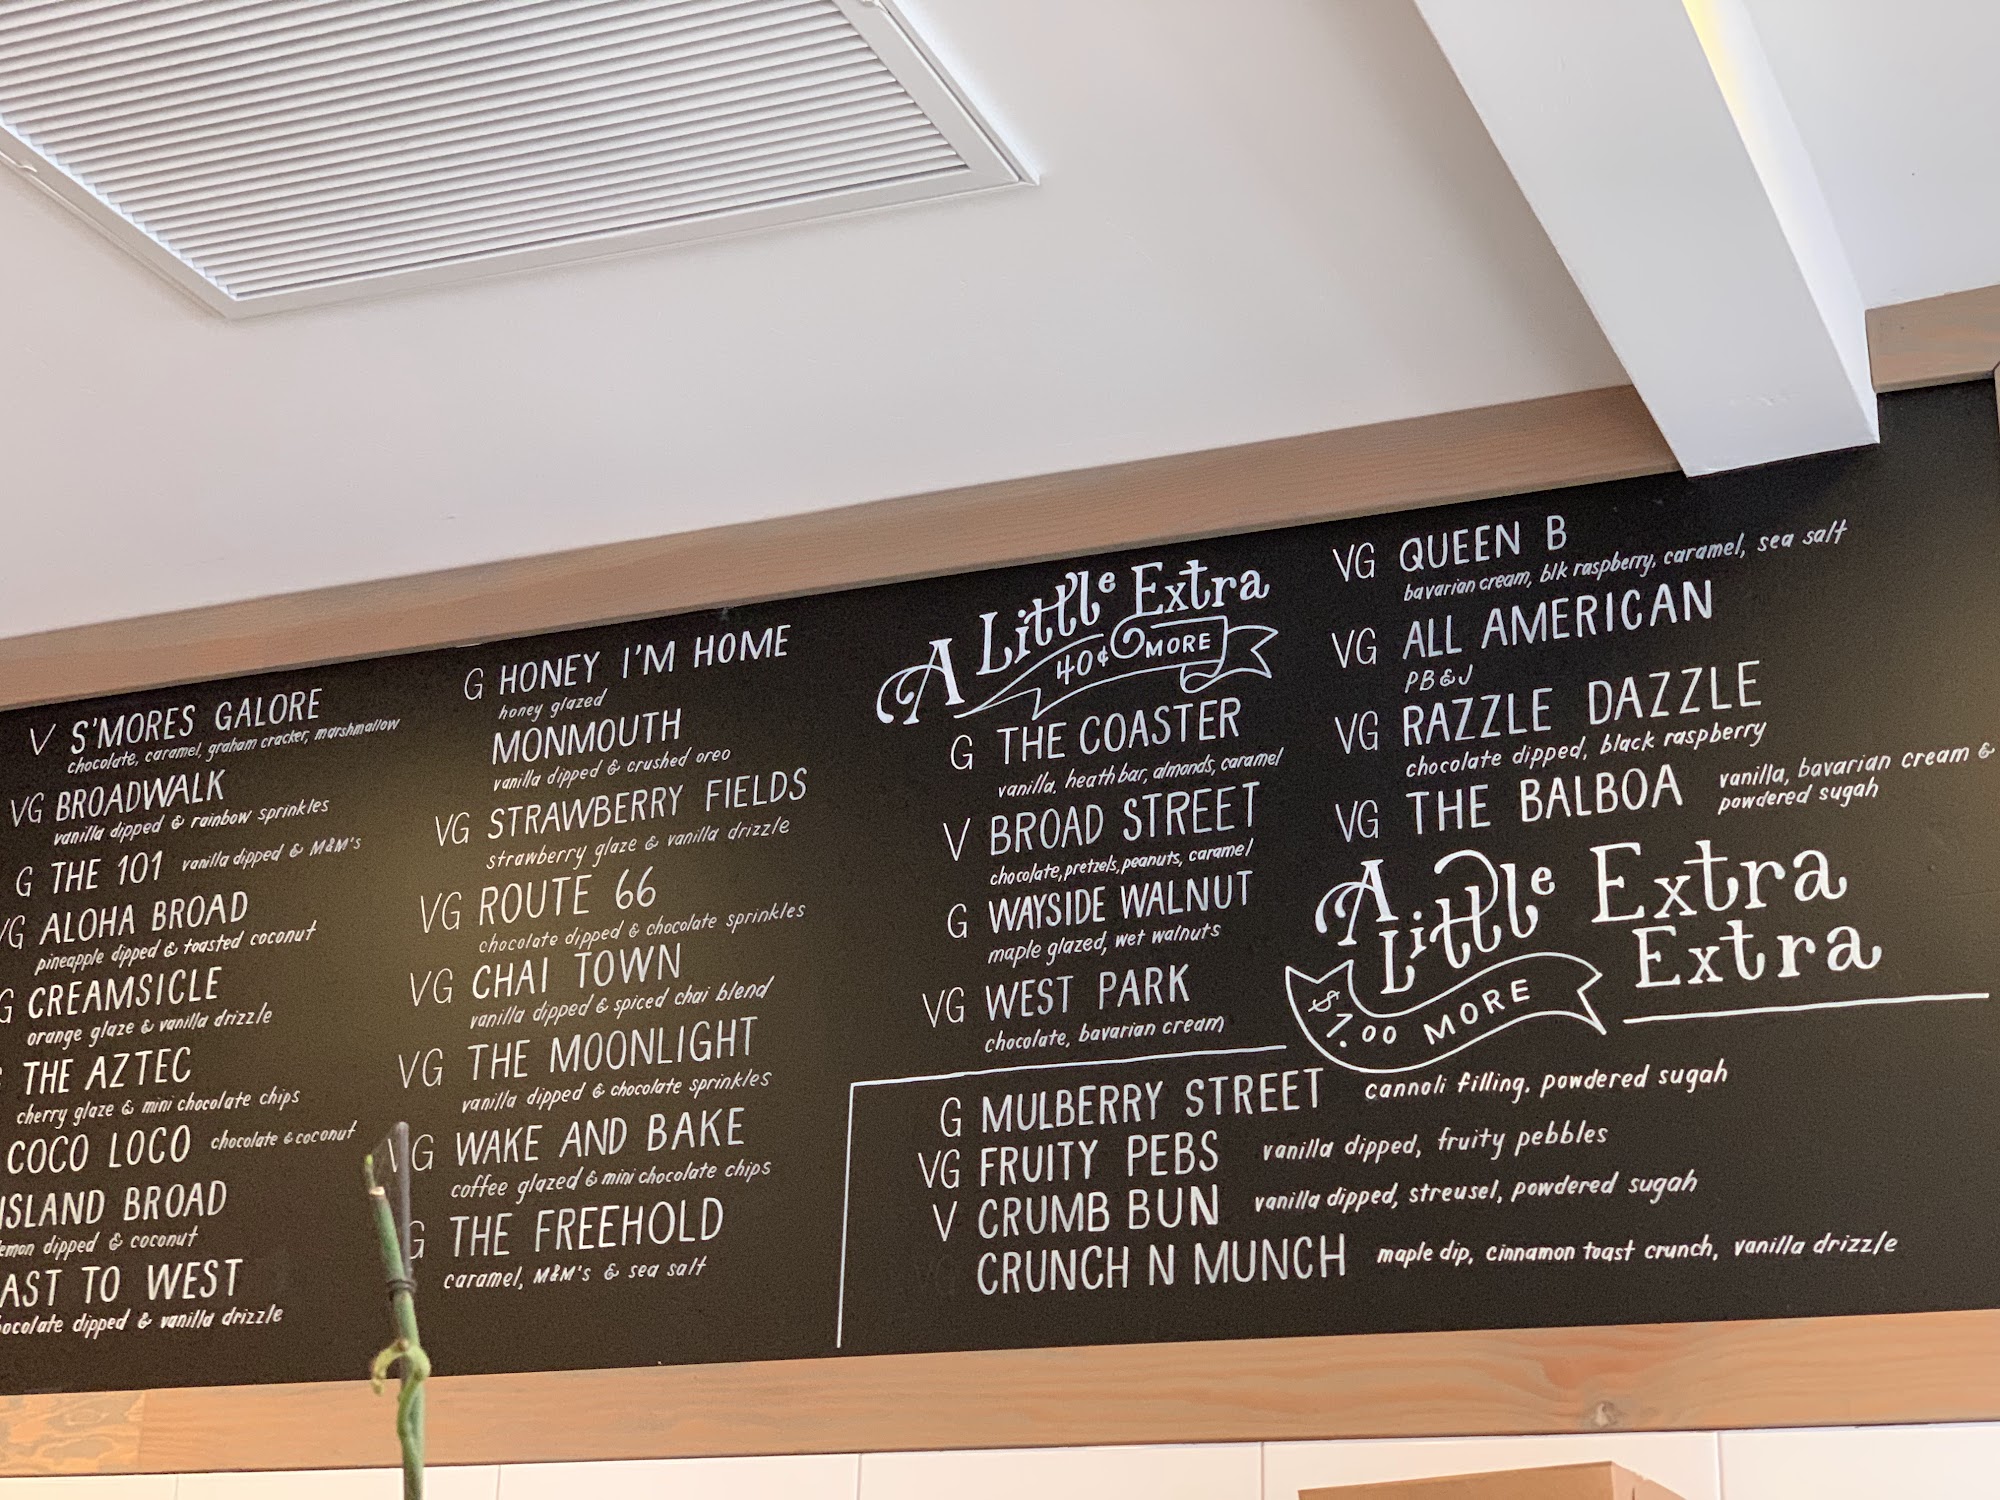 V S'MORES GALORE
chocolate, caramel, graham cracker, marshmallow
VG BROADWALK
vanilla dipped & rainbow sprinkles
G THE 101 vanilla dipped & M&M's
VG ALOHA BROAD
pineapple dipped & toasted coconut
G CREAMSICLE
orange glaze & vanilla drizzle
THE AZTEC
cherry glaze & mini chocolate chips
COCO LOCO chocolate & coconut
ISLAND BROAD
lemon dipped & coconut
AST TO WEST
ocolate dipped & vanilla drizzle
G HONEY I'M HOME
honey glazed
MONMOUTH
vanilla dipped & crushed oreo
VG STRAWBERRY FIELDS
strawberry glaze & vanilla drizzle
VG ROUTE 66
chocolate dipped & chocolate sprinkles
VG CHAI TOWN
vanilla dipped & spiced chai blend
VG THE MOONLIGHT
vanilla dipped & chocolate sprinkles
VG WAKE AND BAKE
coffee glazed & mini chocolate chips
G THE FREEHOLD
caramel, M&M's & sea salt
A Little Extra
40¢ MORE
G THE COASTER
vanilla, heath bar, almonds, caramel
V BROAD STREET
chocolate, pretzels, peanuts, caramel
G WAYSIDE WALNUT
maple glazed, wet walnuts
VG WEST PARK
chocolate, bavarian cream
VG QUEEN B
bavarian cream, blk raspberry, caramel, sea salt
VG ALL AMERICAN
PB&J
VG RAZZLE DAZZLE
chocolate dipped, black raspberry
VG THE BALBOA vanilla, bavarian cream &
powdered sugah
A Little Extra
Extra
$1.00 MORE
G MULBERRY STREET cannoli filling, powdered sugah
VG FRUITY PEBS vanilla dipped, fruity pebbles
V CRUMB BUN vanilla dipped, streusel, powdered sugah
CRUNCH N MUNCH maple dip, cinnamon toast crunch, vanilla drizzle